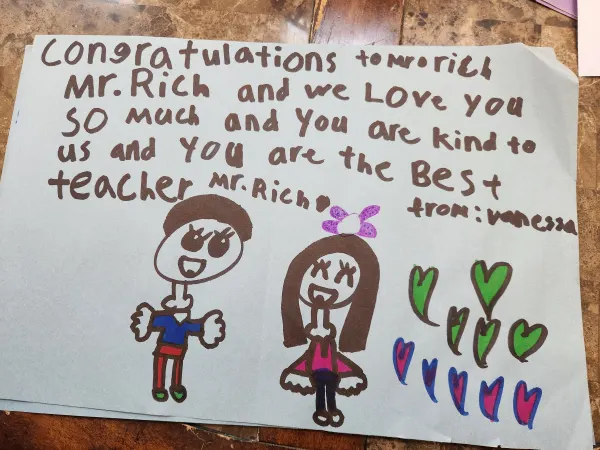 Congratulations to mr rich
Mr. Rich and we Love you
so much and you are kind to
us and you are the Best
teacher Mr. Rich
from: vanessa